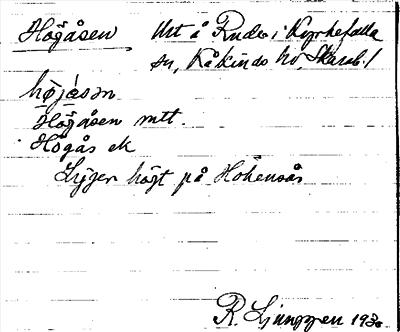 Högåsen Utt å Rudes i Kyrkefalla
sn, Kåkinds hd, Skarab. l
höjåsən
Högåsen mtt.
Högås ek
Ligger högt på Hökensås
R. Ljunggren 1930